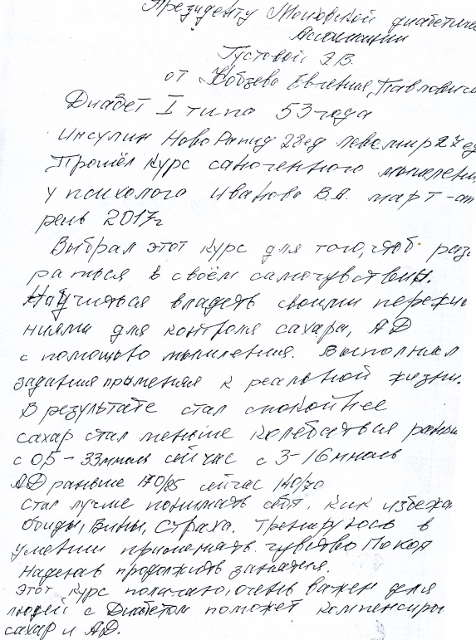 Президенту Московской диабетиче
Ассоциации
Густовой Э.В.
от Кобзева Евгения Павловича
Диабет I типа 53 года
инсулин НовоРапид 22ед левемир 27ед
Прошёл курс саногенного мышления
у психолога Иванова В.А. март-ап
рель 2017г
Выбрал этот курс для того, чтоб разо
раться в своём самочувствии.
Научиться владеть своими пережи
ниями для контроля сахара, АД
с помощью мышления. Выполнял
задания применяя к реальной жизни.
В результате стал спокойнее
сахар стал меньше колебаться раньш
с 0,5 - 33 ммоль сейчас с 3-16 ммоль
АД раньше 170/85 сейчас 140/70
стал лучше понимать себя, как избежа
обиды, вины, страха. Тренируюсь в
умении применять чувство Покоя
надеюсь продолжить занятия.
этот курс полагаю, очень важен для
людей с Диабетом поможет компенсиро
сахар и АД.